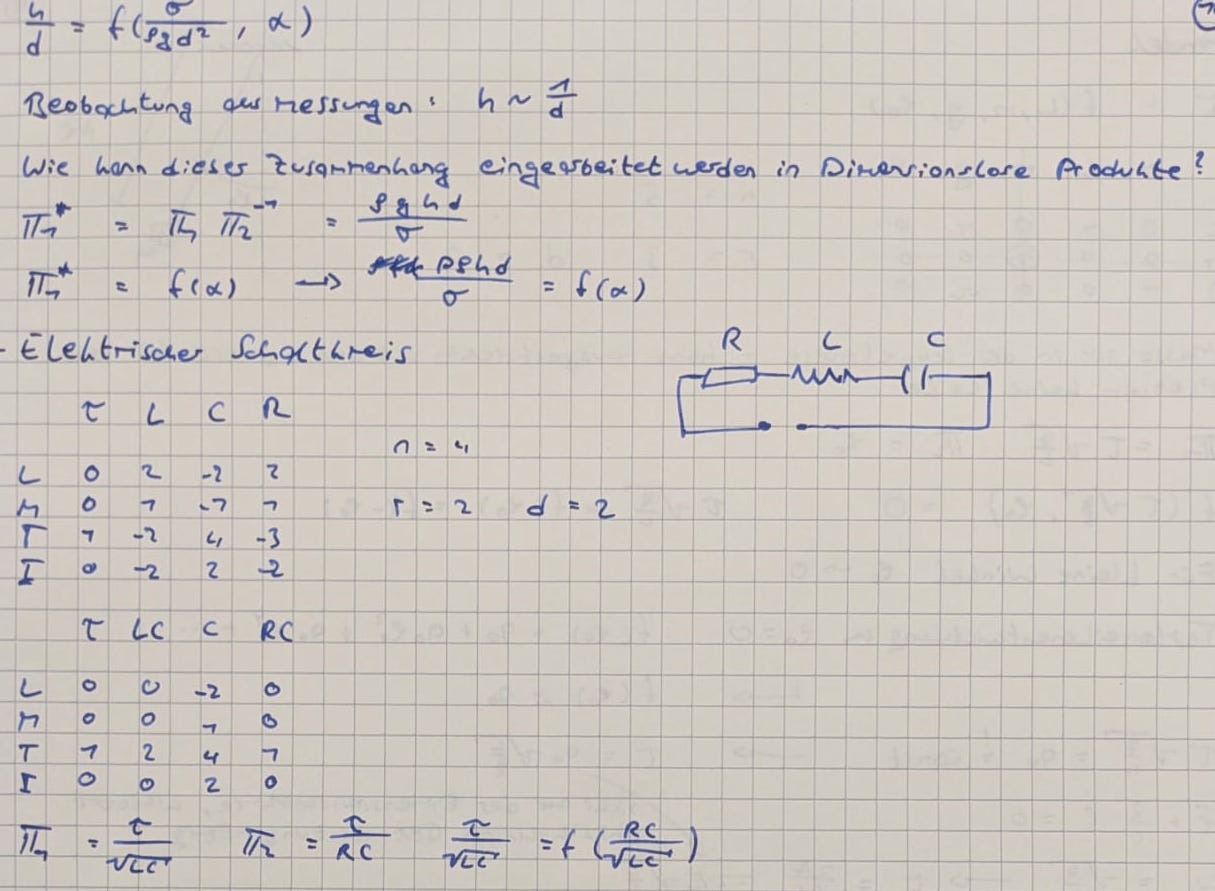 h/d = f(σ/(ρgd²), α)
Beobachtung aus Messungen: h ~ 1/d
Wie kann dieser Zusammenhang eingearbeitet werden in Dimensionslose Produkte?
Π₁* = Π₁ Π₂⁻¹ = ρghd/σ
Π₁* = f(α) → ρghd/σ = f(α)
- Elektrischer Schaltkreis
R L C
τ L C R
n = 4
L 0 2 -2 2
M 0 1 -1 1 r = 2 d = 2
T 1 -2 4 -3
I 0 -2 2 -2
τ LC C RC
L 0 0 -2 0
M 0 0 -1 0
T 1 2 4 1
I 0 0 2 0
Π₁ = τ/√LC Π₂ = τ/RC τ/√LC = f(RC/√LC)